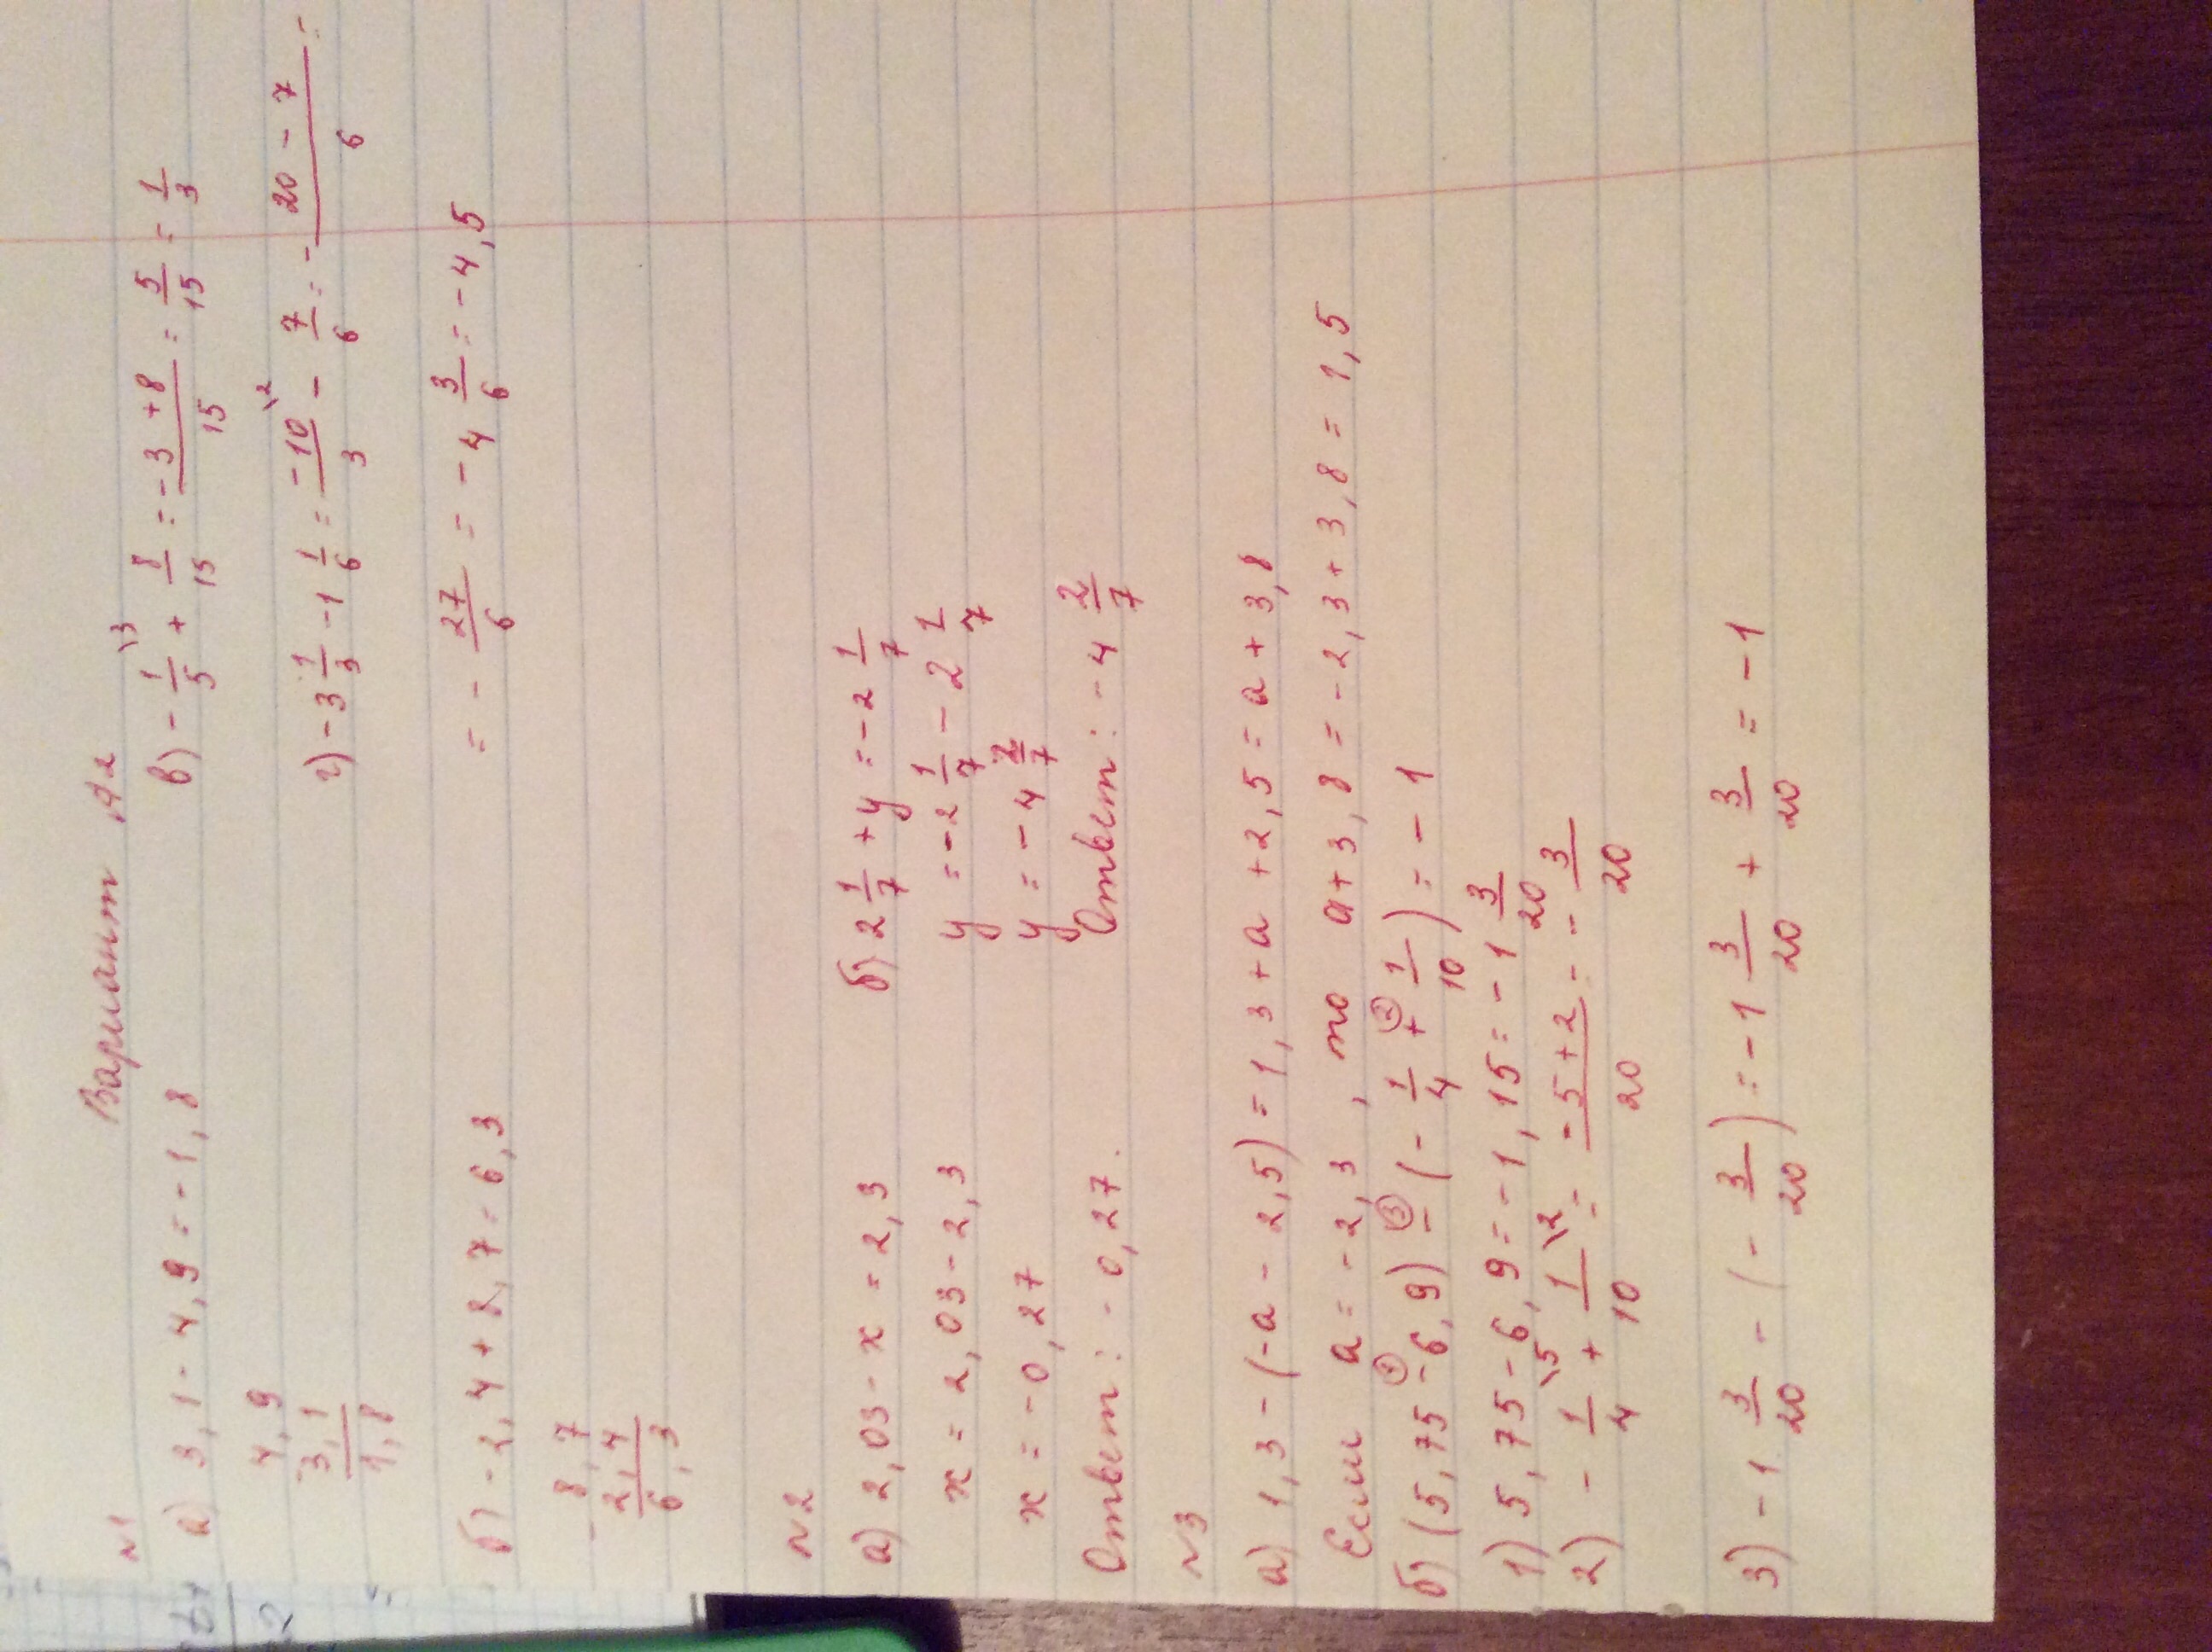 Вариант А2
№1
а) 3,1 - 4,9 = -1,8
4,9
3,1
1,8
б) -2,4 + 8,7 = 6,3
- 8,7
2,4
6,3
в) - 1/5 \3 + 8/15 = -3+8/15 = 5/15 = 1/3
г) -3 1/3 - 1 1/6 = -10/3 \2 - 7/6 = - 20-7/6 =
= - 27/6 = -4 3/6 = -4,5
№2
а) 2,03 - x = 2,3
x = 2,03 - 2,3
x = -0,27
Ответ: -0,27.
б) 2 1/7 + y = -2 1/7
y = -2 1/7 - 2 1/7
y = -4 2/7
Ответ: -4 2/7
№3
а) 1,3 - (-a - 2,5) = 1,3 + a + 2,5 = a + 3,8
Если a = -2,3, то a + 3,8 = -2,3 + 3,8 = 1,5
б) (5,75 -① 6,9) -③ (- 1/4 +② 1/10) = -1
1) 5,75 - 6,9 = -1,15 = -1 3/20
2) - 1/4 \5 + 1/10 \2 = -5+2/20 = - 3/20
3) -1 3/20 - (- 3/20) = -1 3/20 + 3/20 = -1